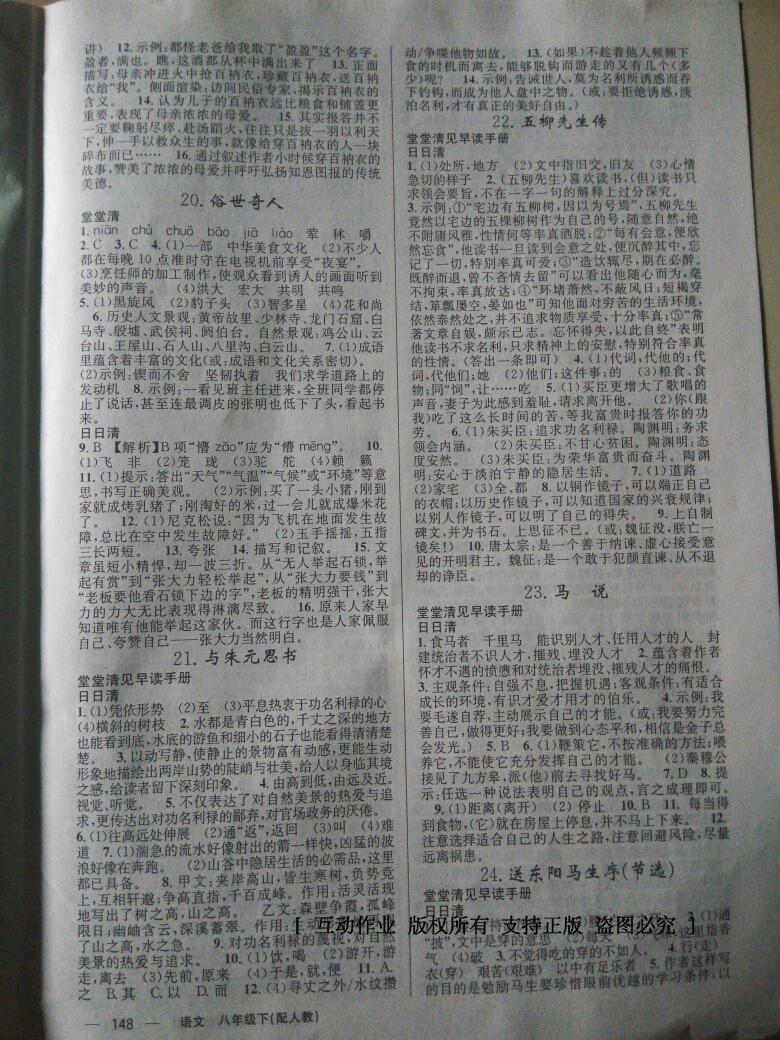 讲) 12.示例:都怪老爸给我取了“盈盈”这个名字。
盈者,满也。瞧,这酒都从杯中满出来了 13.正面
描写:母亲冲进火中抢百衲衣,珍藏百衲衣,送百衲
衣给“我”。侧面渲染:访问民俗专家,揭示百衲衣的
含义。 14.认为儿子的百衲衣远比粮食和铺盖更
重要,表现了母亲浓浓的母爱。 15.其实报答并不
一定要鞠躬尽瘁、赴汤蹈火,往往只是拔一羽以利天
下,伸一手以救众生的事,就像给穿百衲衣的人一块
碎布而已…… 16.通过叙述作者小时候穿百衲衣的
故事,赞美了浓浓的母爱并呼吁弘扬知恩图报的传统
美德。
20.俗世奇人
堂堂清
1.niān chù chuō bāo jiā liào 荤 秫 嚼
2.C 3.C 4.(1)一部 中华美食文化 (2)不少人
都在每晚10点准时守在电视机前享受“夜宴”。
(3)烹饪师的加工制作,使观众看到诱人的画面听到
美妙的声音。 (4)洪大 宏大 共明 共鸣
5.(1)黑旋风 (2)豹子头 (3)智多星 (4)花和尚
6.历史人文景观:黄帝故里、少林寺、龙门石窟、白
马寺、殷墟、武侯祠、阏伯台。自然景观:鸡公山、云
台山、王屋山、石人山、八里沟、白云山。 7.(1)成语
里蕴含着丰富的文化(或:成语和文化关系密切)。
(2)示例:锲而不舍 坚韧执着 我们求学道路上的
发动机 8.示例:一看见班主任进来,全班同学都停
止了说话,甚至连最调皮的张明也低下了头,看起书
来。
日日清
9.B 【解析】B项“懵zāo”应为“懵měng”。 10.
(1)飞 非 (2)笼 珑 (3)驼 舵 (4)赖 籁
11.(1)提示:答出“天气”“气温”“气候”或“环境”等意
思,书写正确美观。 (2)示例:买了一头小猪,刚到
家就成烤乳猪了;刚淘好的米,过一会儿就成爆米花
了。 12.(1)尼克松说:“因为飞机在地面发生故
障,总比在空中发生故障好。” (2)玉手摇摇,五指
三长两短。 13.夸张 14.描写和记叙。 15.文
章虽短小精悍,却一波三折。从“无人举起石锁,举
起有赏”到“张大力轻松举起”,从“张大力要钱”到
“老板要他看石锁下边的字”,老板的精明强干,张大
力的力大无比表现得淋漓尽致。 16.原来人家早
知道唯有他能举起这家伙。而这行字也是人家佩服
自己、夸赞自己——张大力当然明白。
21.与朱元思书
堂堂清见早读手册
日日清
1.(1)凭依形势 (2)至 (3)平息热衷于功名利禄的心
(4)横斜的树枝 2.水都是青白色的,千丈之深的地方
也能看到底,水底的游鱼和细小的石子也能看得清清楚
楚。 3.以动写静,使静止的景物富有动感,更能生动
形象地描绘出两岸山势的陡峭与壮美,给人以身临其境
之感,给读者留下深刻印象。 4.由高到低,由远及近。
视觉、听觉。 5.不仅表达了对自然美景的热爱与追
求,更传达出对功名利禄的鄙弃,对官场政务的厌倦。
6.(1)往高远处伸展 (2)通“返”,返回 (3)叫 (4)难
道 7.(1)湍急的流水好像射出的箭一样快,凶猛的波
浪好像在奔跑。 (2)山谷中隐居生活的必需品,这里
都已具备。 8.甲文:夹岸高山,皆生寒树,负势竞
上,互相轩邈;争高直指,千百成峰。作用:活灵活现
地写出了树之高,山之高。 乙文:森壁争霞,孤峰
限日;幽岫含云,深溪蓄翠。作用:
了山之高,水之急。 9.对功名利禄的蔑视,对自然
美景的热爱与追求。 10.(1)饮,喝 (2)游开,游
走,离去 (3)先前,原来 (4)于是,就,便 11.A.
之 B.其 C.以 D.而 12.(4)寻丈之外/水纹攒
动/争喋他物如故。 13.(如果)不趁着他人频频下
食的时机而离去,能够脱钩而游走的又有几个(多
少)呢? 14.示例:告诫世人,莫为名利所诱惑而吞
下钓钩,而成为他人盘中之物。(或:要拒绝诱惑,淡
泊名利,才有真正的美好自由。)
22.五柳先生传
堂堂清见早读手册
日日清
1.(1)处所,地方 (2)文中指旧交,旧友 (3)心情
急切的样子 2.(五柳先生)喜欢读书,(但)读书只
求领会要旨,不在一字一句的解释上过分深究。
3.示例:①“宅边有五柳树,因以为号焉”,五柳先生
竟然以宅边的五棵柳树作为自己的号,随意自然,绝
不附庸风雅,性情何等率真洒脱;②“每有会意,便欣
然忘食”,他读书一旦读到会意之处,便沉醉其中,忘
记了一切,特别率真可爱;③“造饮辄尽,期在必醉。
既醉而退,曾不吝情去留”可以看出他随心而为,毫
不拘束,率真放达;④“环堵萧然,不蔽风日;短褐穿
结,箪瓢屡空,晏如也”可知他面对穷苦的生活环境,
依然泰然处之,并不追求物质享受,十分率真;⑤“常
著文章自娱,颇示己志。忘怀得失,以此自终”表明
他读书不求名利,只求精神上的安慰,特别符合率真
的性情。(答出一条即可) 4.(1)代词,代他的;代
词,代他们;她 (2)他们;这件事;的 (3)粮食、食
物;同“饲”,让……吃 5.(1)买臣更增大了歌唱的
声音,妻子为此感到羞耻,请求离开他。 (2)你(跟
我)吃了这么长时间的苦,等我富贵时报答你的功
劳。 6.(1)朱买臣:追求功名利禄。陶渊明:务求
领会内涵。 (2)朱买臣:不甘心贫困。陶渊明:态
度安然。 (3)朱买臣:为荣华富贵而奋斗。陶渊
明:安心于淡泊宁静的隐居生活。 7.(1)道路
(2)家宅 (3)全、都 8.以铜作镜子,可以端正自己
的衣帽;以历史作镜子,可以知道国家的兴衰规律;
以别人作镜子,可以明了自己的得失。 9.上自制
碑文,并为书石。上思征不已。(或:魏征没,朕亡一
镜矣!) 10.唐太宗:是一个善于纳谏、虚心接受意
见的开明君主。魏征:是一个敢于犯颜直谏、从不退
却的诤臣。
23.马 说
堂堂清见早读手册
日日清
1.食马者 千里马 能识别人才、任用人才的人 封
建统治者不识人才,摧残、埋没人才 2.蕴含着作者
怀才不遇的愤懑和对统治者埋没、摧残人才的痛恨。
3.主观条件:自强不息,把握机遇;客观条件:有适合
成长的环境,有识才爱才用才的伯乐。 4.示例:我
要毛遂自荐,主动展示自己的才能。(或:我要努力完
善自己,做得更好;我要做到心态平和,相信是金子总
会发光。) 5.B 6.(1)鞭策它,不按准确的方法;喂
养它,不能使它充分发挥自己的才能。 (2)秦穆公
接见了九方皋,派(他)前去寻找好马。 7.D 8.提
示:任选一种说法表明自己的观点,言之成理即可。
9.(1)距离(离开) (2)停止 10.B 11.每当得
到食物,(它)就在房屋上停息,并不马上下来。 12.
注意选择适合自己的人生之路,注意回避风险,尽量
远离祸患。
24.送东阳马生序(节选)
堂堂清见早读手册
日日清
(1)通
“披”,文中是穿的意思 (2)每天 这里指香
气 (4)破 3.不觉得吃的穿的不如人。 4.行(走)
衣(穿) 艰苦(艰难) 以中有足乐者 5.作者这样写
的目的是勉励马生要珍惜眼前优越的学习条件,以
[ 互动作业 版权所有 支持正版 盗图必究 ]
— 148 — 语文 八年级下(配人教)